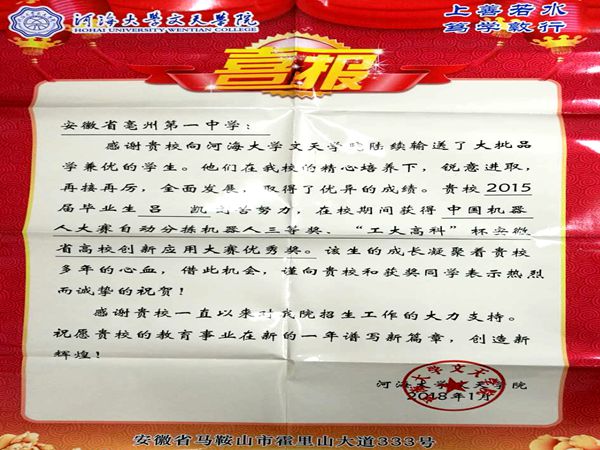 河海大学文天学院
HOHAI UNIVERSITY WENTIAN COLLEGE
上善若水
笃学敦行
喜报
安徽省亳州第一中学：
感谢贵校向河海大学文天学院陆续输送了大批品
学兼优的学生。他们在我校的精心培养下，锐意进取，
再接再厉，全面发展，取得了优异的成绩。贵校 2015
届毕业生吕 凯刻苦努力，在校期间获得 中国机器
人大赛自动分拣机器人三等奖、“工大高科”杯安徽
省高校创新应用大赛优秀奖。该生的成长凝聚着贵校
多年的心血，借此机会，谨向贵校和获奖同学表示热烈
而诚挚的祝贺！
感谢贵校一直以来对我院招生工作的大力支持。
祝愿贵校的教育事业在新的一年谱写新篇章，创造新
辉煌！
河海大学文天学院
2018年1月
安徽省马鞍山市霍里山大道333号